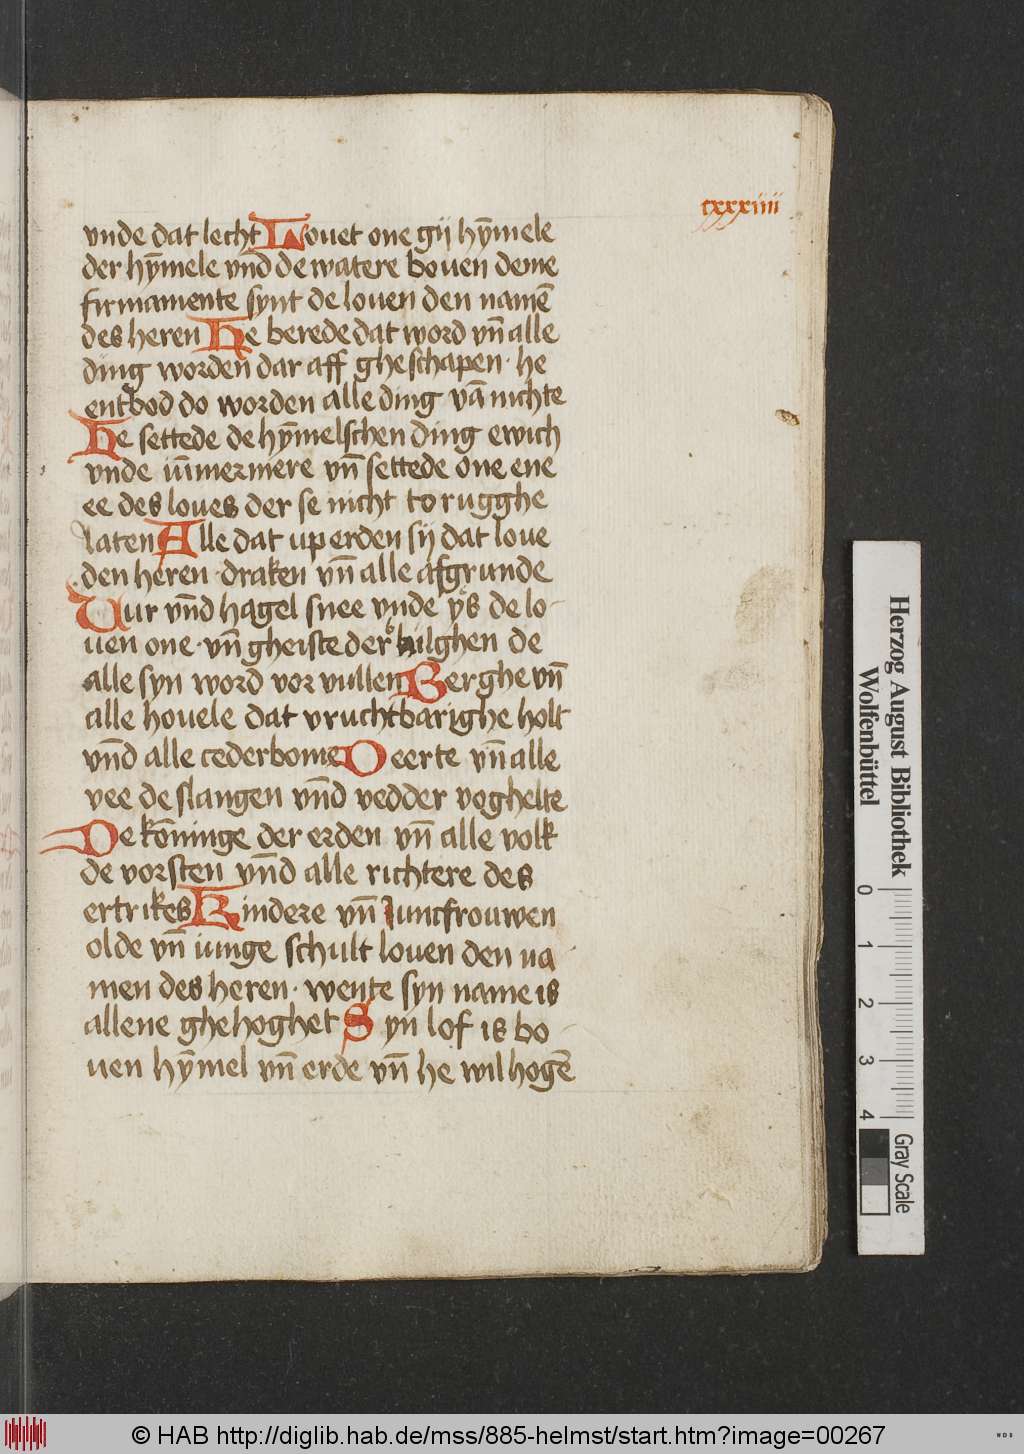 cxxxiiii
vnde dat lecht Louet one gij hȳmele
der hȳmele vn̄d de watere bouen deme
firmamente synt de louen den namē
des heren He berede dat word vn̄ alle
ding worden dar aff gheschapen · he
entbod do worden alle ding vā nichte
He settede de hȳmelschen ding ewich
vnde iūmermere vn̄ settede one ene
ee des loues der se nicht to rugghe
laten Alle dat up erden sij dat loue
den heren · draken vn̄ alle afgrunde
Vur vn̄d hagel snee vnde ys de lo-
uen one · vn̄ gheiste der hilghen de
alle syn word vor vullen Berghe vn̄
alle houele dat vruchtbarighe holt
vn̄d alle cederbome Deerte vn̄ alle
vee de slangen vn̄d vedder voghelte
De kōninge der erden vn̄ alle volk
de vorsten vn̄d alle richtere des
ertrikes Kindere vn̄ Juncfrouwen
olde vn̄ iunge schult louen den na
men des heren · wente syn name is
allene ghehoghet Syn lof is bo-
uen hȳmel vn̄ erde vn̄ he wil hogē
Herzog August Bibliothek
Wolfenbüttel
0 1 2 3 4
Gray Scale
© HAB http://diglib.hab.de/mss/885-helmst/start.htm?image=00267